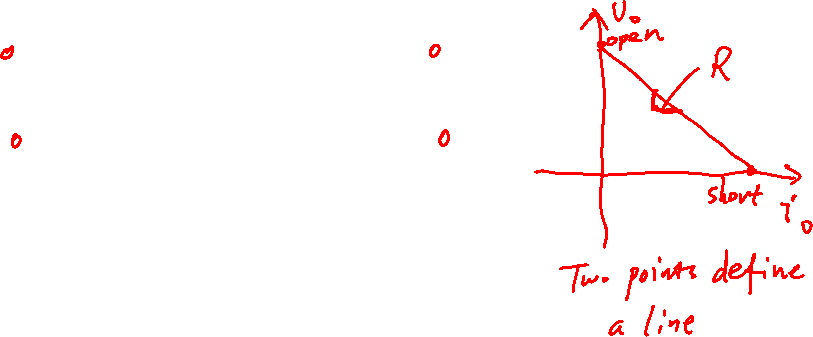 U₀
open
R
short
i₀
Two points define
a line